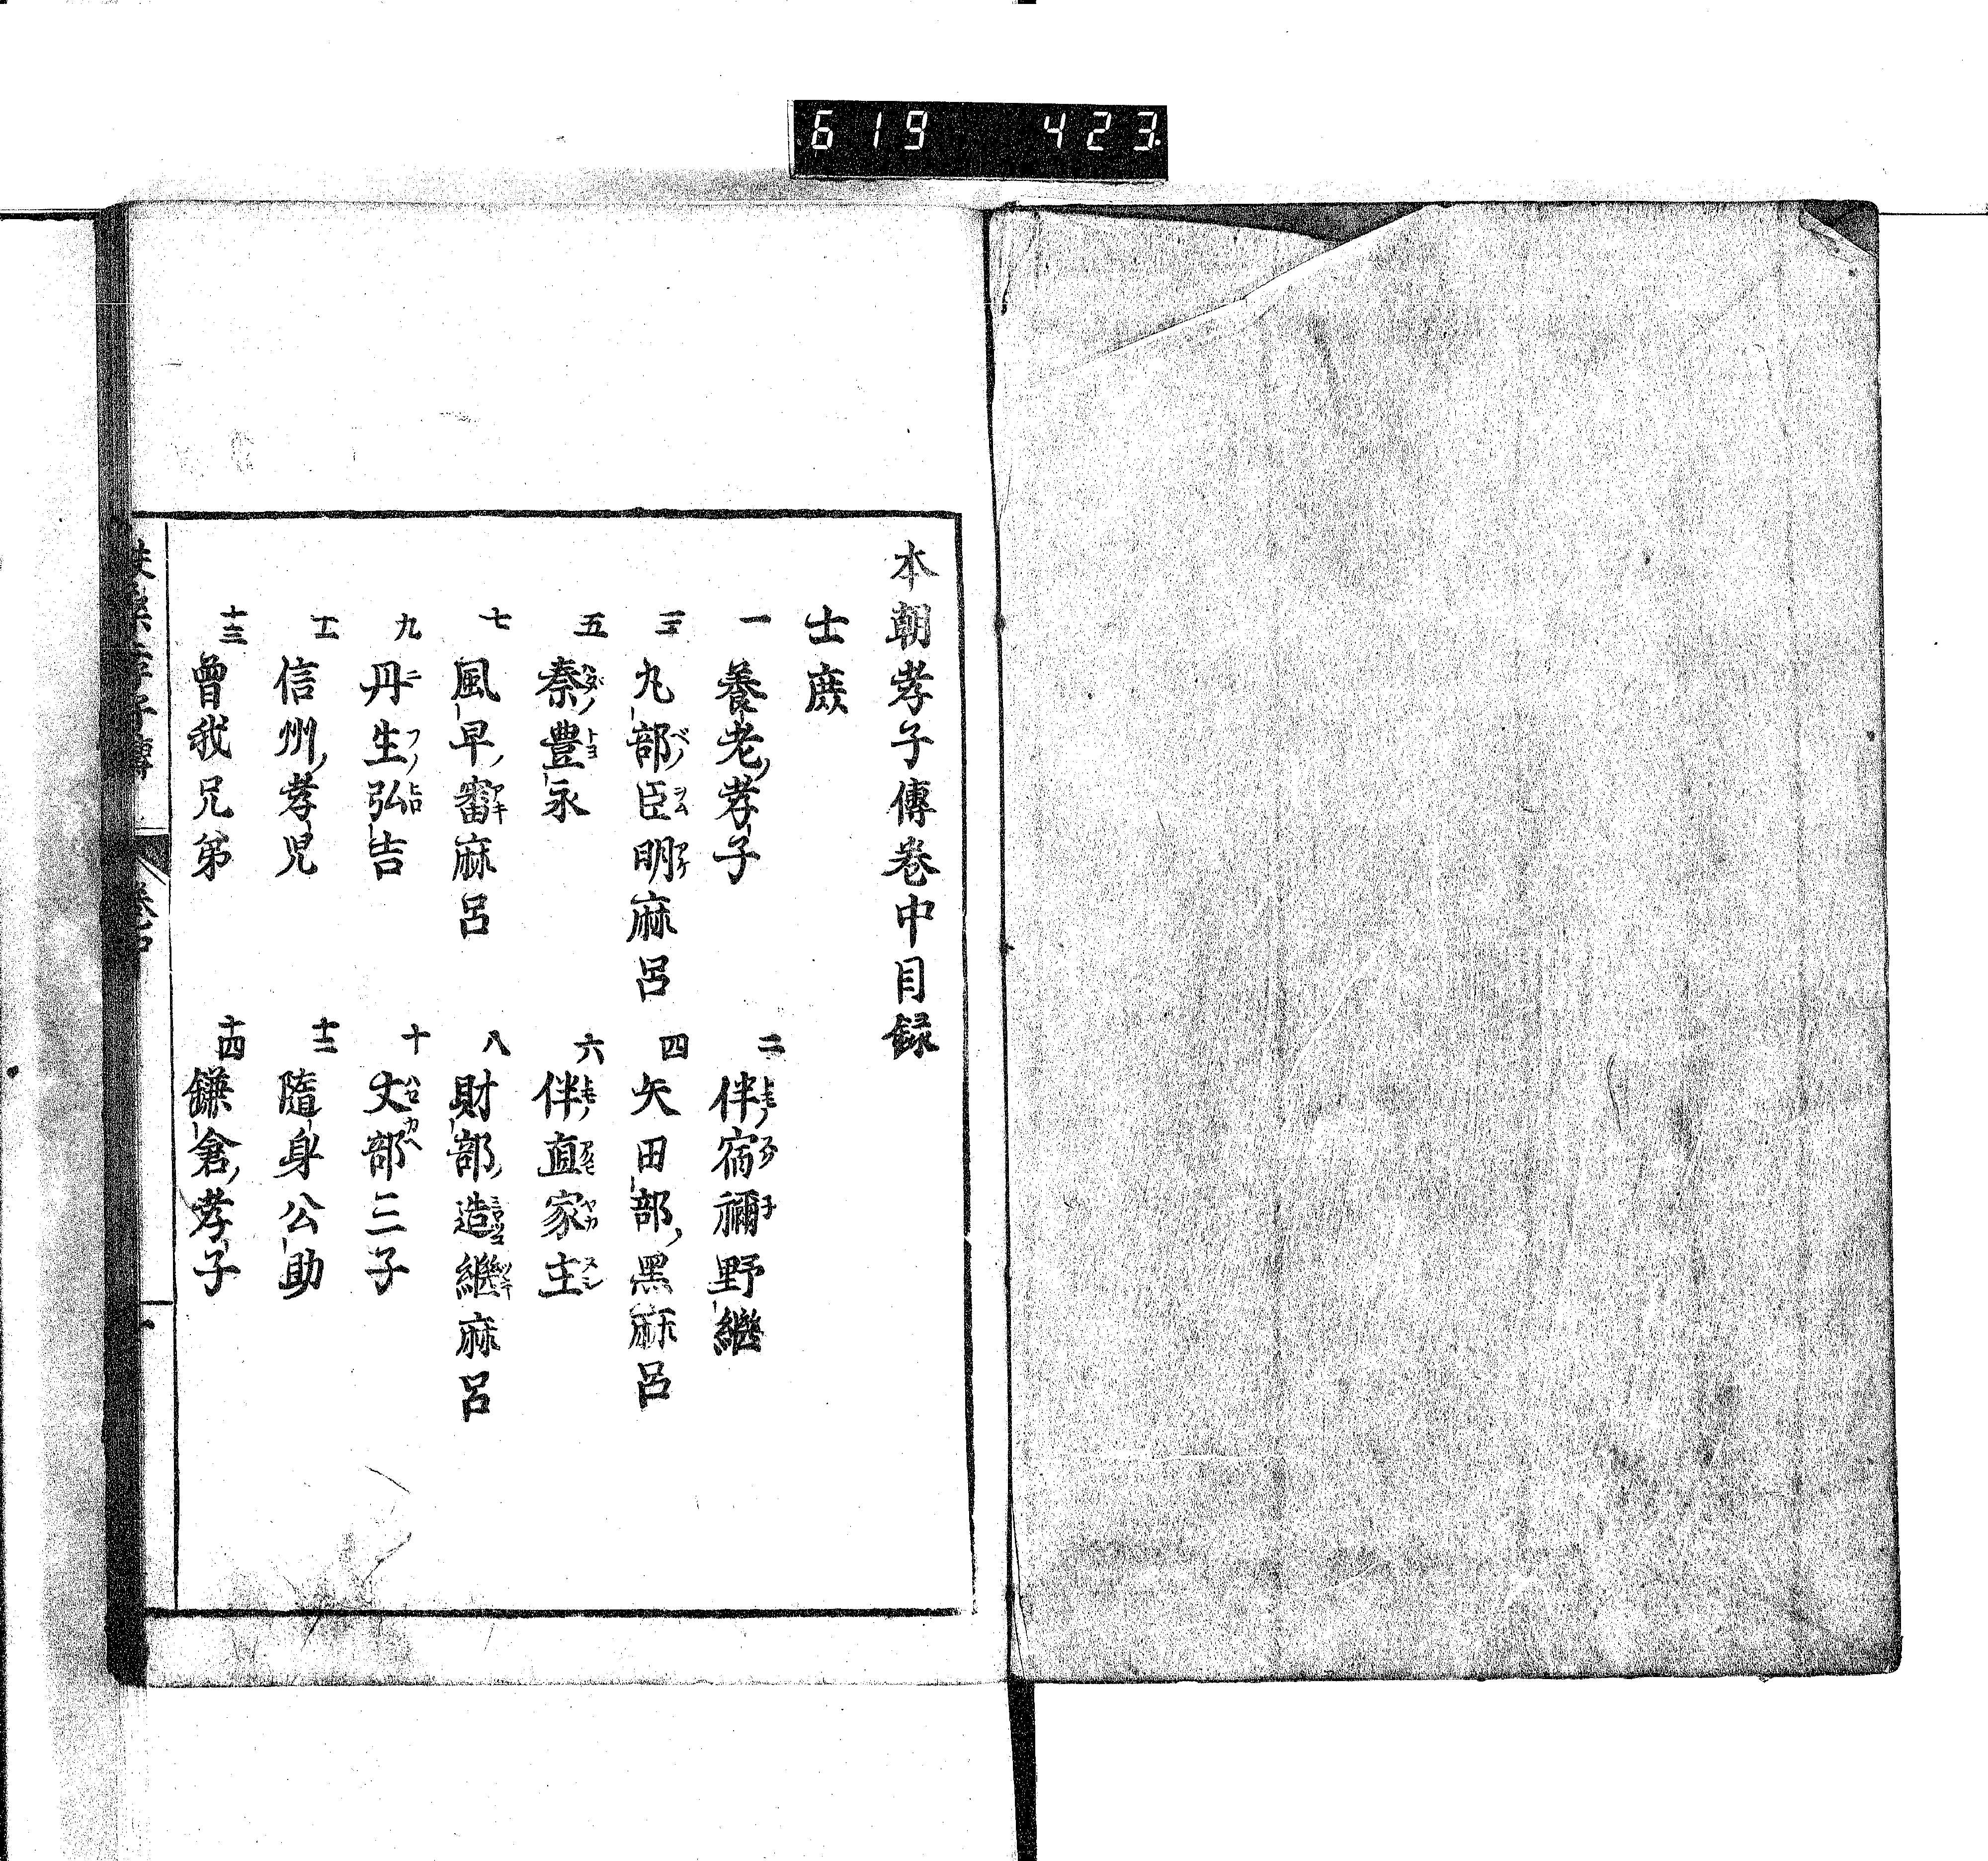 619 423
本朝孝子傳卷中目録
士庶
一 養老孝子
二 伴宿禰野繼
三 丸部臣明麻呂
四 矢田部黑麻呂
五 秦豊永
六 伴直家主
七 風早審麻呂
八 財部造繼麻呂
九 丹生弘吉
十 丈部三子
十一 信州孝児
十二 隨身公助
十三 曾我兄弟
十四 鎌倉孝子